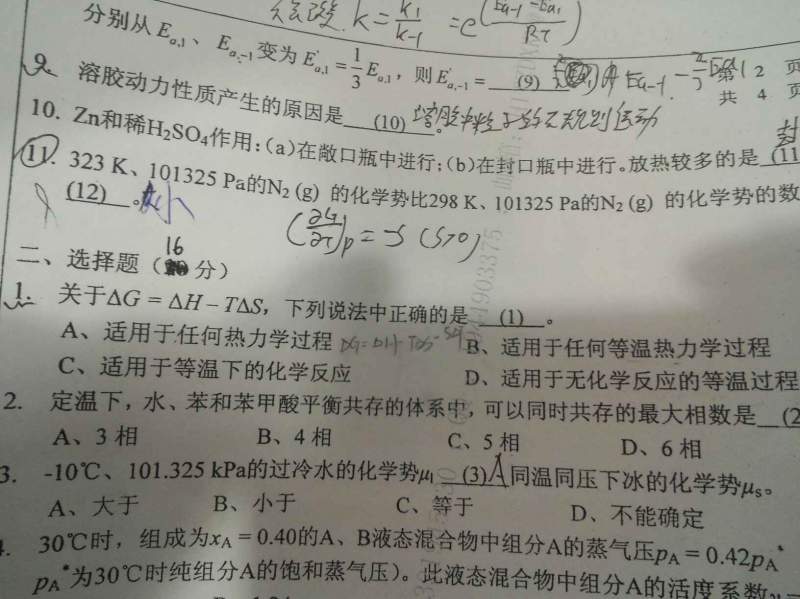 k = k₁/k₋₁ = e
分别从Eₐ,₁、Eₐ,₋₁变为E'ₐ,₁ = 1/3 Eₐ,₁，则E'ₐ,₋₁ = (9) 第 2 页
共 4 页
9. 溶胶动力性质产生的原因是 (10) 。溶胶中粒子的不规则运动
10. Zn和稀H₂SO₄作用：(a)在敞口瓶中进行；(b)在封口瓶中进行。放热较多的是 (11 封
11. 323 K、101325 Pa的N₂ (g) 的化学势比298 K、101325 Pa的N₂ (g) 的化学势的数
(12) 。小
(∂G/∂T)p = -S (S>0)
二、选择题（16 分）
1. 关于ΔG = ΔH – TΔS，下列说法中正确的是 (1) 。
A、适用于任何热力学过程 B、适用于任何等温热力学过程
C、适用于等温下的化学反应 D、适用于无化学反应的等温过程
2. 定温下，水、苯和苯甲酸平衡共存的体系中，可以同时共存的最大相数是 (2
A、3 相 B、4 相 C、5 相 D、6 相
3. -10℃、101.325 kPa的过冷水的化学势μₗ (3) A 同温同压下冰的化学势μₛ。
A、大于 B、小于 C、等于 D、不能确定
4. 30℃时，组成为x_A = 0.40的A、B液态混合物中组分A的蒸气压p_A = 0.42p_A*
p_A*为30℃时纯组分A的饱和蒸气压）。此液态混合物中组分A的活度系数